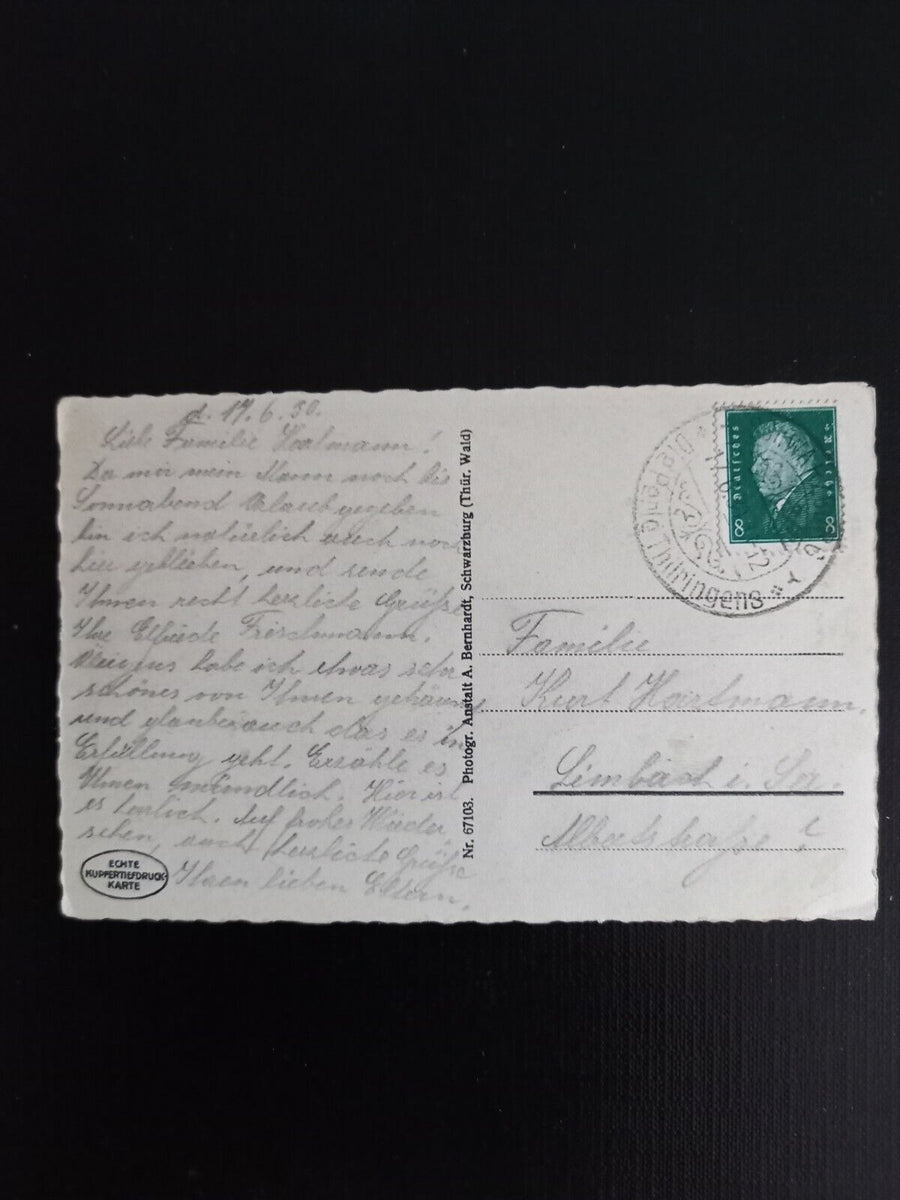 d. 17.6.30.
Liebe Familie Hartmann!
Da mir mein Mann noch bis
Sonnabend Urlaub gegeben
bin ich natürlich auch noch
hier geblieben, und sende
Ihnen recht herzliche Grüße
Ihre Elfriede Frischmann.
habe ich etwas sehr
schönes von Ihnen geträumt
und glaube auch das es in
Erfüllung geht. Erzähle es
Ihnen mündlich. Hier ist
es herlich. Auf frohes Wieder
sehen, auch herzliche Grüße
Ihren lieben Eltern.
ECHTE
KUPFERTIEFDRUCK-
KARTE
Nr. 67103. Photogr. Anstalt A. Bernhardt, Schwarzburg (Thür. Wald)
Deutsches Reich
8 8
Thüringens
Familie
Kurt Hartmann.
Limbach i. Sa.
Albertstraße